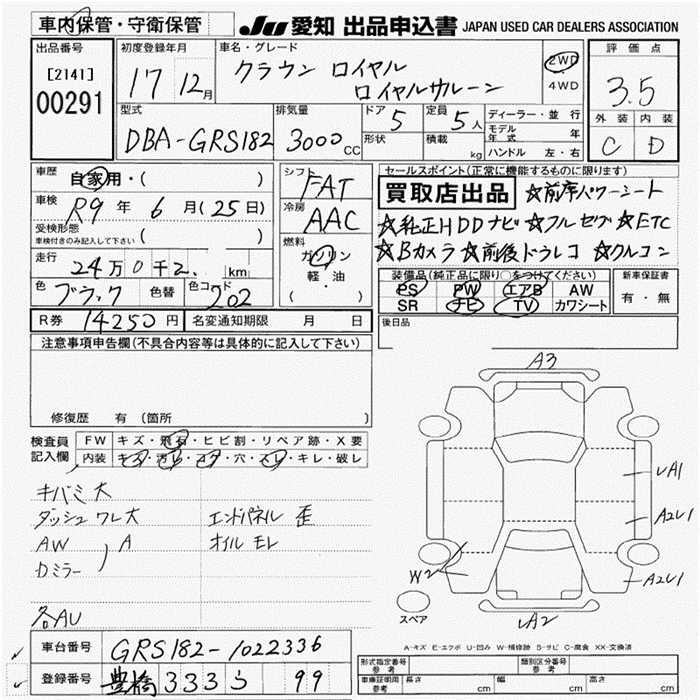 車内保管・守衛保管
JU 愛知 出品申込書 JAPAN USED CAR DEALERS ASSOCIATION
出品番号 初度登録年月 車名・グレード 評価点
[2141]
00291
17 12月
クラウン ロイヤル
ロイヤルサルーン
2WD
4WD
3.5
型式 排気量 ドア 定員 ディーラー・並行 外装 内装
DBA-GRS182 3000CC 5 5人
形状 積載 kg
モデル年式 年
ハンドル 左・右
C D
車歴 自家用・( )
車検 R9年 6月(25日)
受検形態
車検付きのみ記入して下さい ( )
走行 24万0千2 km
色 ブラック 色替 色コード 202
シフト FAT
冷房 AAC
燃料 ガソリン
軽・油
( )
セールスポイント(正常に機能するものに限ります)
買取店出品 ☆前席パワーシート
☆純正HDDナビ ☆フルセグ ☆ETC
☆Bカメラ ☆前後ドラレコ ☆クルコン
装備品(純正品に限り○をつけてください) 新車保証書
PS PW エアB AW
SR ナビ TV カワシート
有・無
R券 14250円 名変通知期限 月 日
後日品
注意事項申告欄(不具合内容等は具体的に記入して下さい)
修復歴 有 (箇所
検査員記入欄
FW キズ・飛石・ヒビ割・リペア跡・X要
内装 キズ・汚レ・コゲ・穴・スレ・キレ・破レ
キバミ大
ダッシュ ワレ大 エンドパネル 歪
AW A オイルモレ
Dミラー
各AU
A3
A1
A2U1
A2U1
W2
A2
スペア
A-キズ E-エクボ U-凹み W-補修跡 S-サビ C-腐食 XX-交換済
車台番号 GRS182-1022336
登録番号 豊橋 333 ら 99
形式指定番号 参考 類別区分番号 参考
車庫証明用 参考 長さ cm 幅 cm 高さ cm